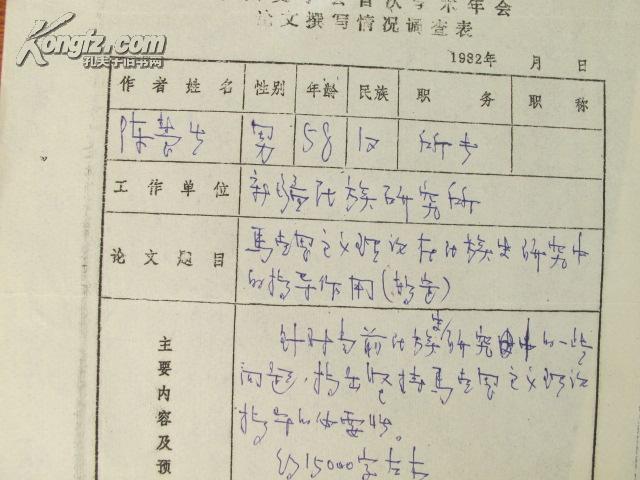 首次学术年会
论文撰写情况调查表
Kongfz.com
孔夫子旧书网
1982年 月 日
作者姓名 性别 年龄 民族 职务 职称
陈慧生 男 58 汉 所长
工作单位 新疆民族研究所
论文题目 馬克思主义理论在民族史研究中
的指导作用(暂定)
主要内容及预
针对当前民族史研究中的一些
问题,指出坚持馬克思主义理论
指导的必要性。
约15000字左右